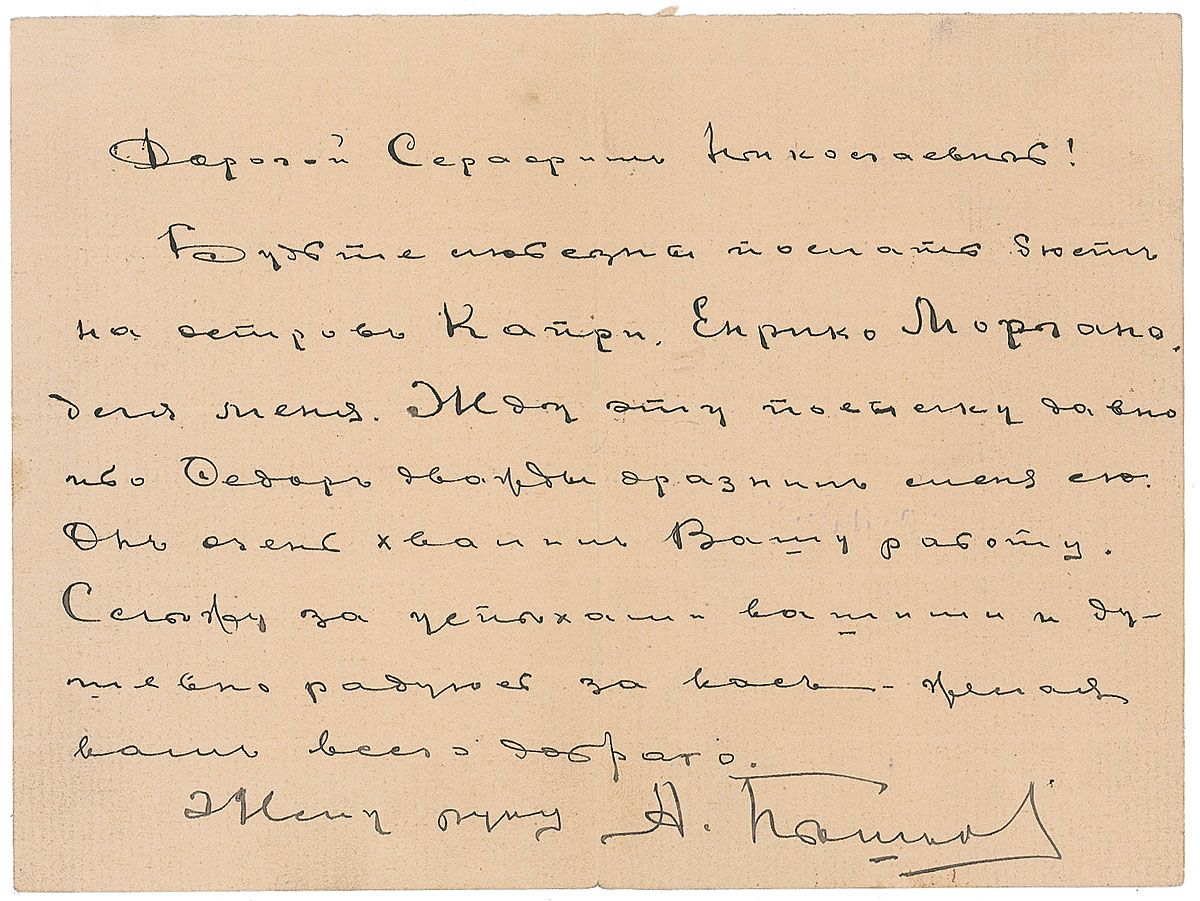 Дорогой Серафимъ Николаевичъ!
Будьте любезны послать бюстъ
на островъ Капри, Енрико Моргано,
для меня. Жду эту посылку давно
ибо Федоръ дважды дразнилъ меня ею.
Онъ очень хвалилъ Вашу работу.
Слѣжу за успѣхами вашими и ду-
шевно радуюсь за васъ – желая
вамъ всего добраго.
Жму руку А. Пѣшков